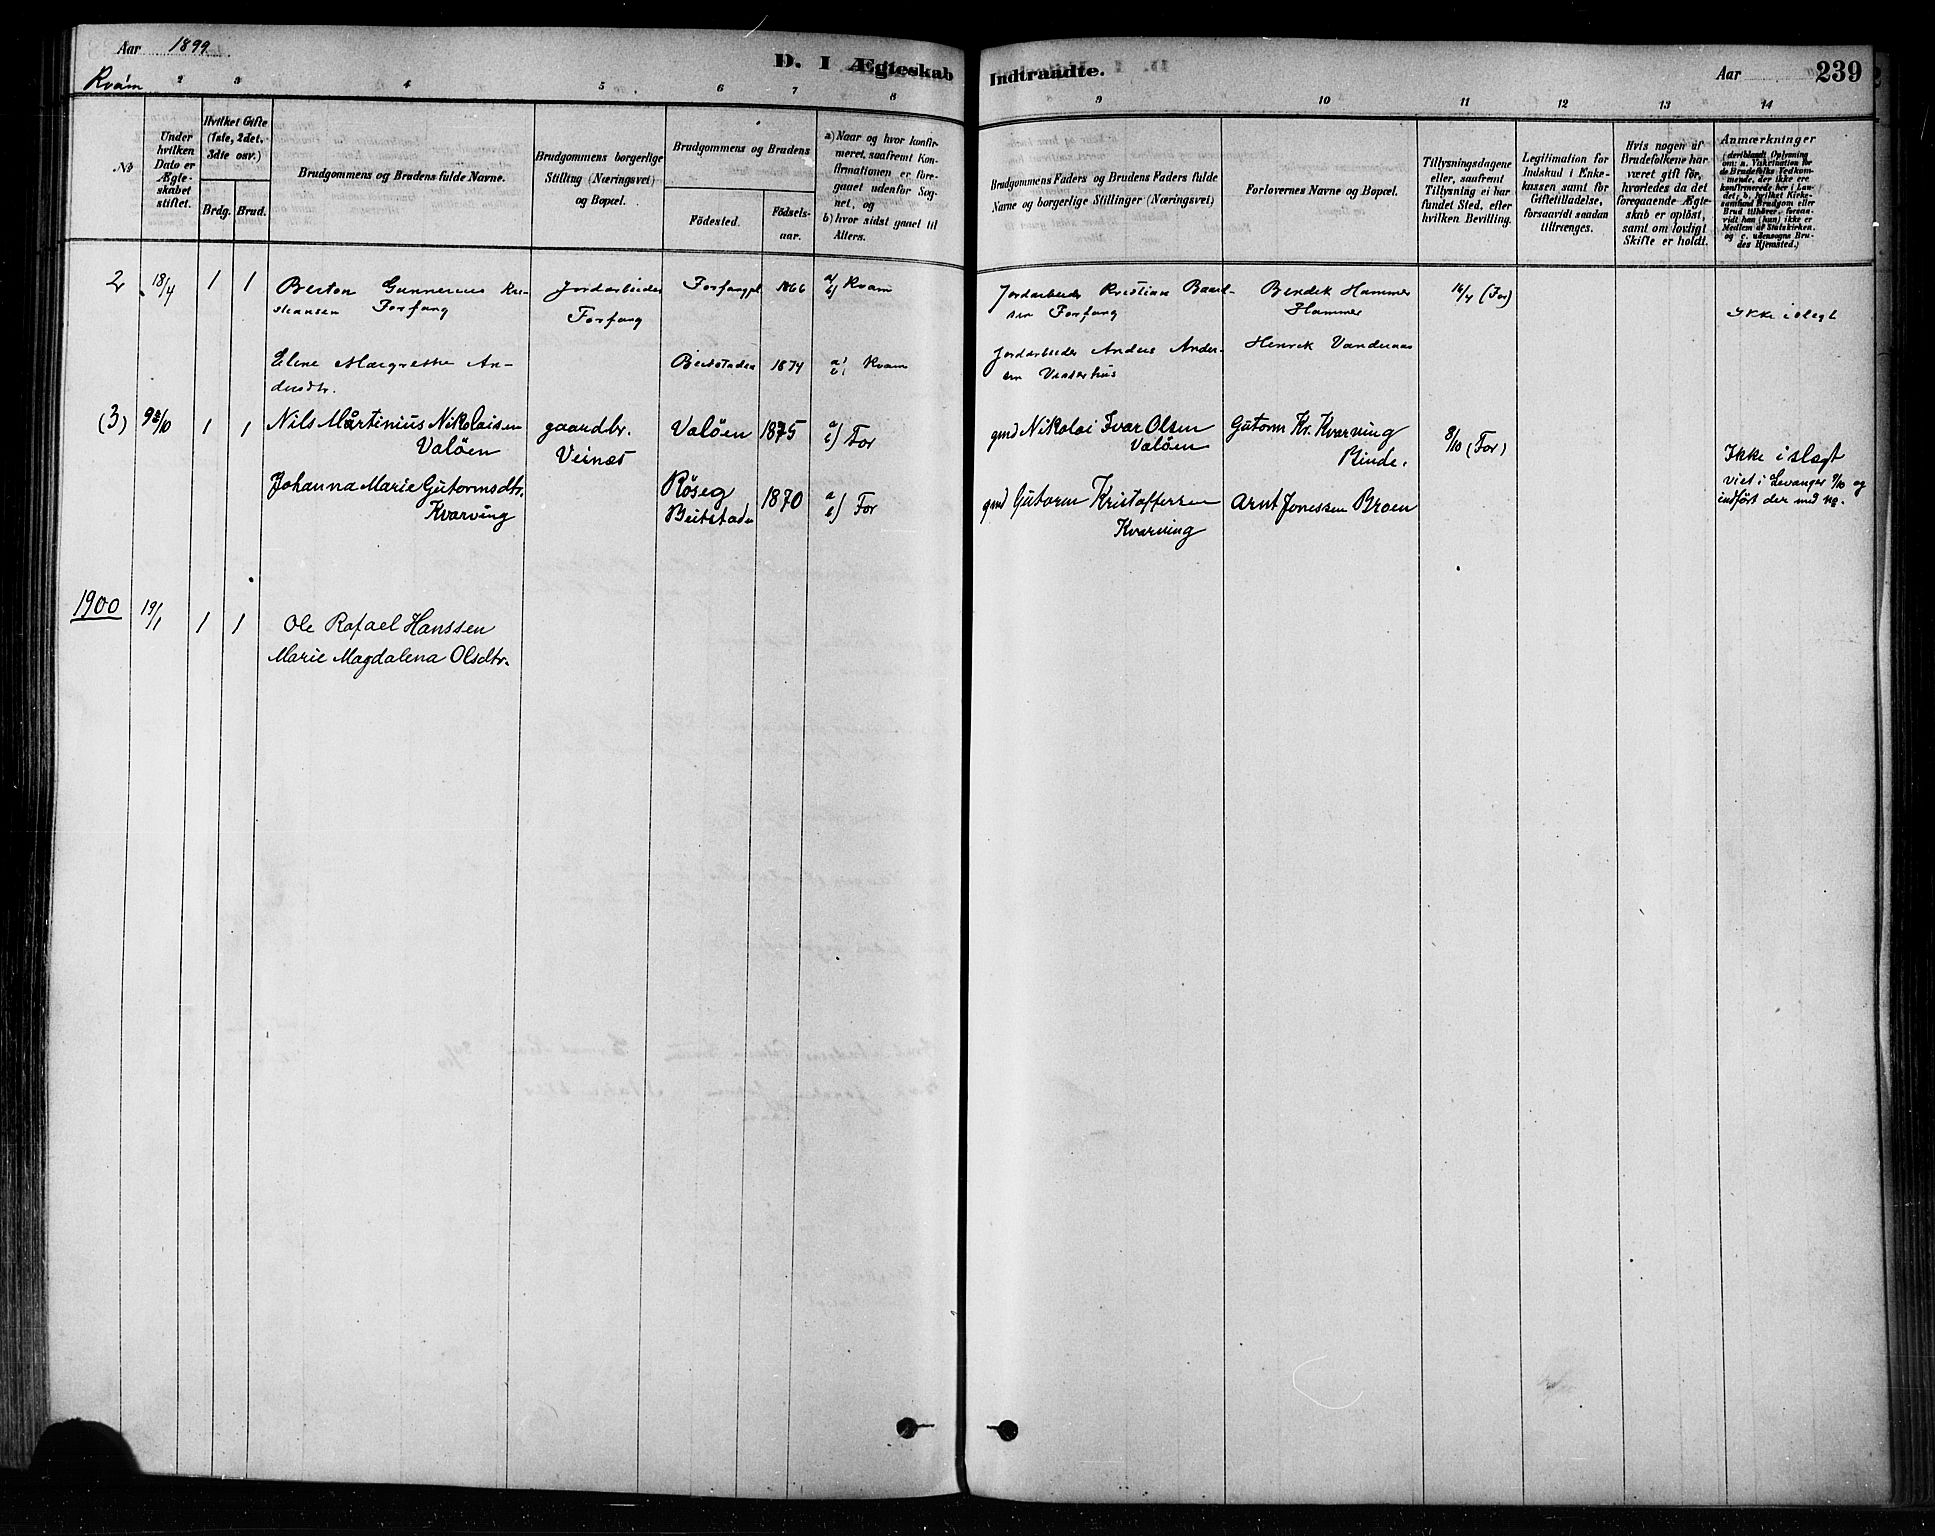 Aar 1899
Kvam
D. I Ægteskab Indtraadte.
Aar
239
2 3 4 5 6 7 8 9 10 11 12 13 14
No
Under hvilken Dato er Ægteskabet stiftet.
Hvilket Gifte (1ste, 2det, 3die osv.)
Brdg. Brud.
Brudgommens og Brudens fulde Navne.
Brudgommens borgerlige Stilling (Næringsvei) og Bopæl.
Brudgommens og Brudens
Fødested.
Fødselsaar.
a) Naar og hvor konfirmeret, saafremt Konfirmationen er foregaaet udenfor Sognet, og
b) hvor sidst gaaet til Alters.
Brudgommens Faders og Brudens Faders fulde Navne og borgerlige Stillinger (Næringsvei)
Forlovernes Navne og Bopæl.
Tillysningsdagene eller, saafremt Tillysning ei har fundet Sted, efter hvilken Bevilling.
Legitimation for Indskud i Enkekassen samt for Giftetilladelse, forsaavidt saadan tiltrænges.
Hvis nogen af Brudefolkene har været gift før, hvorledes da det foregaaende Ægteskab er opløst, samt om lovligt Skifte er holdt.
Anmærkninger
(deriblandt Oplysning om: a. Viskelnation for de Brudefolks Vedkommende, der ikke ere konfirmerede her i Landet, b. hvilket Kirkesamfund Brudgom eller Brud tilhører, forsaavidt han (hun) ikke er Medlem af Statskirken, og c. udensogns Brudes Hjemsted.)
2 18/4 1 1 Berton Gunnerius Kristiansen Forfang
Jordarbeider Forfang
Forfangpl. 1866 a/ b/ Kvam
Jordarbeider Kristian Baardsen Forfang
Bendik Hammer Hammer
16/4 (For)
Ikke i slegt
Elene Margrethe Andersdtr.
Beitstaden 1874 a/ b/ Kvam
Jordarbeider Anders Andersen
Henrik Vandernaas
(3) 1 1 Nils Martinius Nikolaisen Valöen
gaardbr. Veinæs
Valöen 1875 a b) For
gmd Nikolai Ivar Olsen Valöen
Gutorm Kr. Kvarving Binde.
8/10 (For)
Ikke i slægt
viet i Levanger 9/10 og indført der med no.
Johanna Marie Gutormsdtr. Kvarving
Røseg Beitstaden 1870 a b) For
gmd Gutorm Kristoffersen Kvarving
Arnt Jonessen Broen
1900
19/1 1 1 Ole Rafael Hanssen
Marie Magdalena Olsdtr.